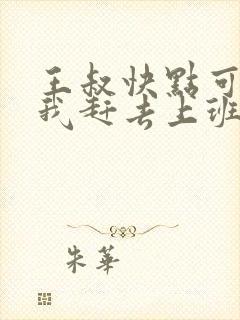 王叔快點可
我赶去上班
朱華